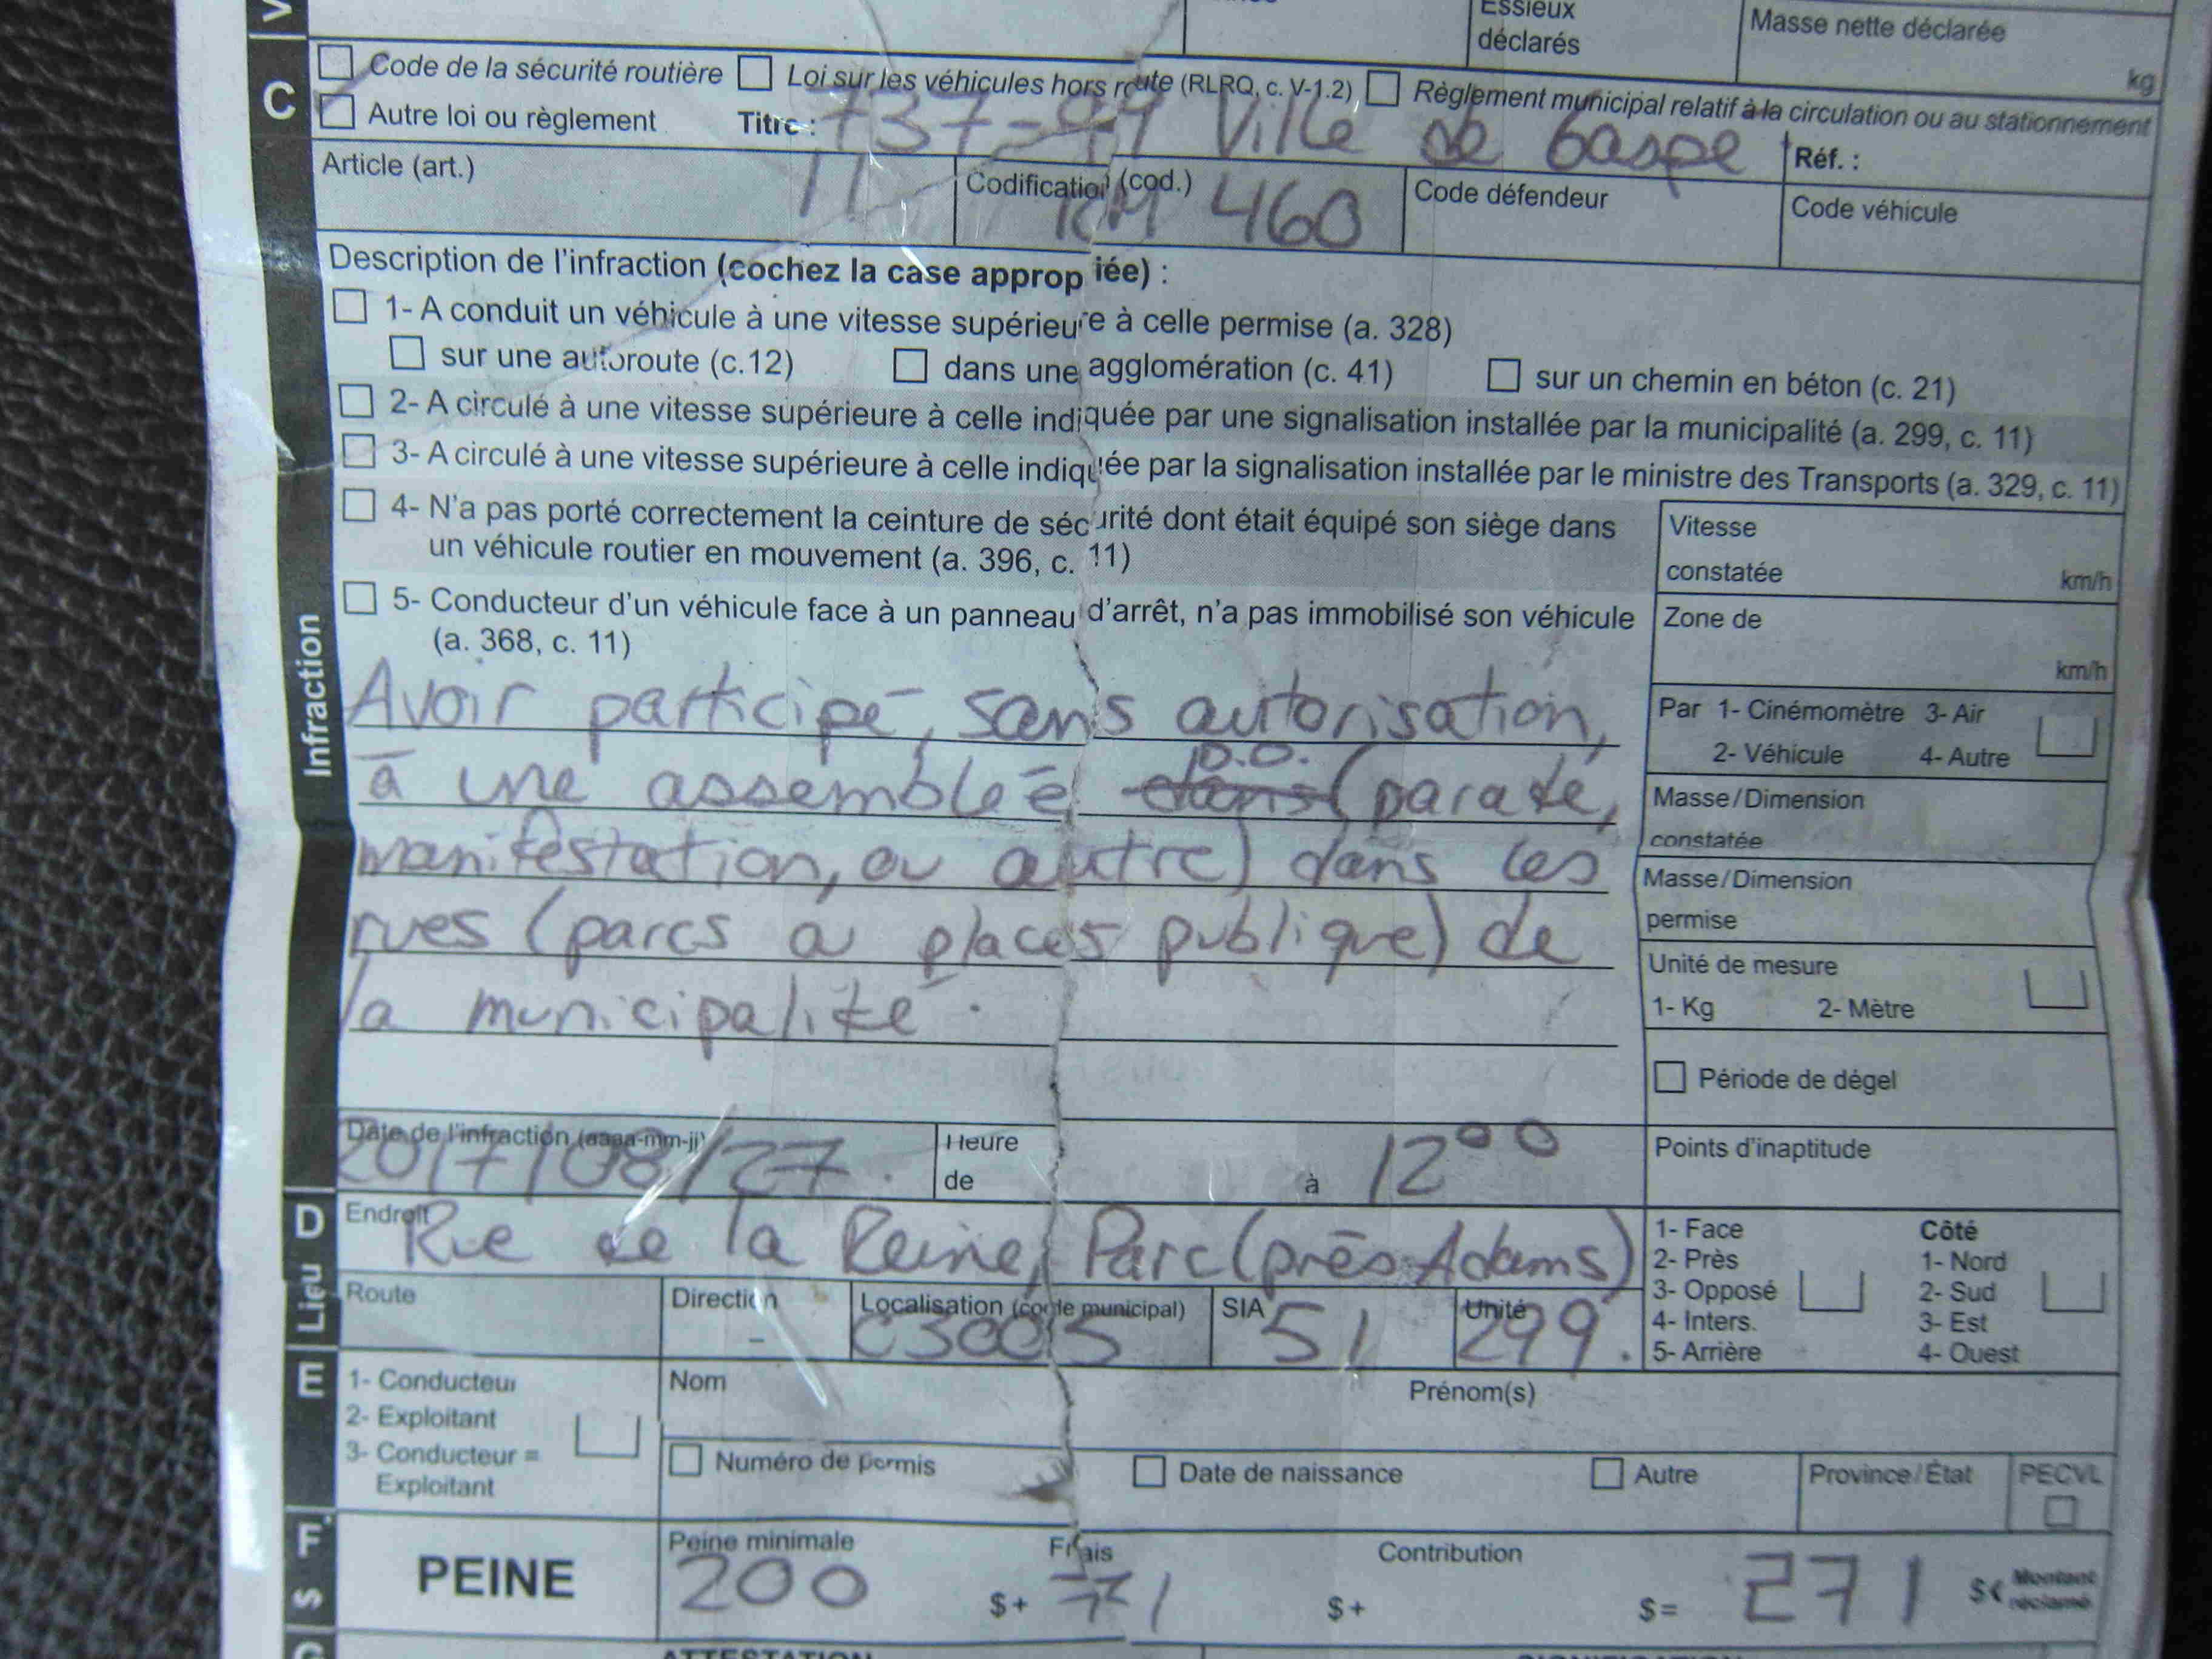 V
Essieux
déclarés
Masse nette déclarée
kg
C
Code de la sécurité routière
Loi sur les véhicules hors route (RLRQ, c. V-1.2)
Règlement municipal relatif à la circulation ou au stationnement
Autre loi ou règlement
Titre : 737-99 Ville de Gaspe
Réf. :
Article (art.) 11
Codification (cod.) RM 460
Code défendeur
Code véhicule
Infraction
Description de l'infraction (cochez la case appropriée) :
1- A conduit un véhicule à une vitesse supérieure à celle permise (a. 328)
sur une autoroute (c.12)
dans une agglomération (c. 41)
sur un chemin en béton (c. 21)
2- A circulé à une vitesse supérieure à celle indiquée par une signalisation installée par la municipalité (a. 299, c. 11)
3- A circulé à une vitesse supérieure à celle indiquée par la signalisation installée par le ministre des Transports (a. 329, c. 11)
4- N'a pas porté correctement la ceinture de sécurité dont était équipé son siège dans
un véhicule routier en mouvement (a. 396, c. 11)
5- Conducteur d'un véhicule face à un panneau d'arrêt, n'a pas immobilisé son véhicule
(a. 368, c. 11)
Avoir participé, sans autorisation,
à une assemblée dans (parade,
manifestation, ou autre) dans les
rues (parcs ou places publique) de
la municipalité.
Vitesse
constatée
km/h
Zone de
km/h
Par 1- Cinémomètre 3- Air
2- Véhicule 4- Autre
Masse/Dimension
constatée
Masse/Dimension
permise
Unité de mesure
1- Kg 2- Mètre
Période de dégel
Date de l'infraction (aaaa-mm-jj)
2017/08/27
Heure
de
à 12 00
Points d'inaptitude
D
Lieu
Endroit
Rue de la Reine, Parc (près Adams)
1- Face
2- Près
3- Opposé
4- Inters.
5- Arrière
Côté
1- Nord
2- Sud
3- Est
4- Ouest
Route
Direction
-
Localisation (code municipal)
03005
SIA 51
Unité 299
E
1- Conducteur
2- Exploitant
3- Conducteur =
Exploitant
Nom
Prénom(s)
Numéro de permis
Date de naissance
Autre
Province/État
PECVL
F
$
PEINE
Peine minimale
200 $ +
Frais
71
Contribution
$ +
$ = 271 $
Montant
réclamé
G
ATTESTATION
SIGNIFICATION